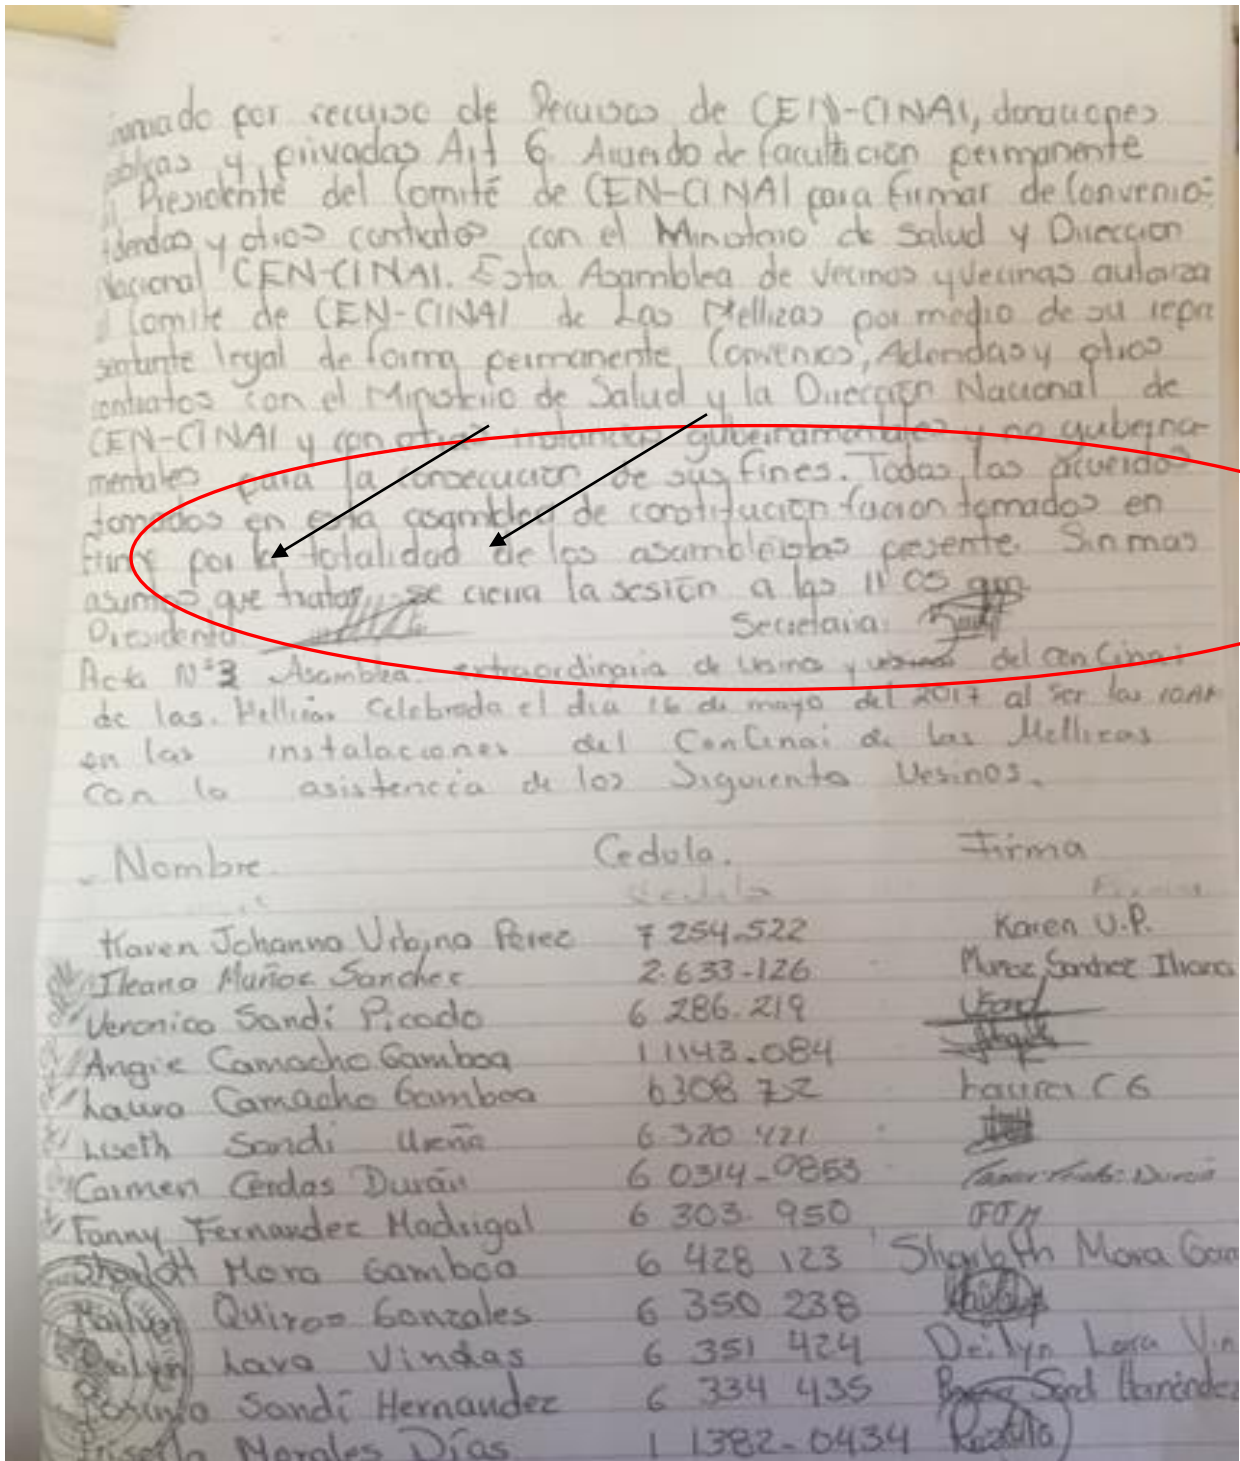 por recurso de Recursos de CEN-CINAI, donaciones
y privadas Art 6. Acuerdo de facultación permanente
Presidente del Comité de CEN-CINAI para firmar de Convenio
y otros contratos con el Ministerio de Salud y Direccion
Nacional CEN-CINAI. Esta Asamblea de Vecinos y Vecinas autoriza
Comite de CEN-CINAI de Las Mellizas por medio de su repre
sentante legal de forma permanente, Convenios, Adendas y otros
contratos con el Ministerio de Salud y la Dirección Nacional de
CEN-CINAI y con otras instancias gubernamentales y no guberna-
mentales para la consecución de sus fines. Todas los acuerdos
tomados en esta asamblea de constitución tomados en
firme por la totalidad de los asambleistas presente. Sin mas
asuntos que tratar, se cierra la sesión a las 11 05 am.
Presidente Secretaria:
Acta N°3 Asamblea extraordinaria de y del cen Cinai
de las. Mellizas Celebrada el dia 16 de mayo del 2017 al ser las 10AM
en las instalaciones del CenCinai de las Mellizas
Con la asistencia de los Siguiente Vesinos.
Nombre Cedula. Firma
Karen Johanna Urbina Perez 7 254.522 Karen U.P.
Ileana Muñoz Sanchez 2.633-126 Muñoz Sanchez Iliana
Veronica Sandí Picado 6 286.219
Angie Camacho Gamboa 1 1143.084 Angie
Laura Camacho Gamboa 6308 72 Laura C G
Liseth Sandi Ureña 6 320 421
Carmen Cerdas Durán 6 0314-0853 Durán
Fanny Fernandez Madrigal 6 303. 950 FFM
Sharloth Mora Gamboa 6 428 123 Sharloth Mora Gam
Quiros Gonzales 6 350 238
Deilyn Lara Vindas 6 351 424 Deilyn Lara Vin
Sandí Hernandez 6 334 435 Sandi Hernández
Morales Días 1 1382-0434